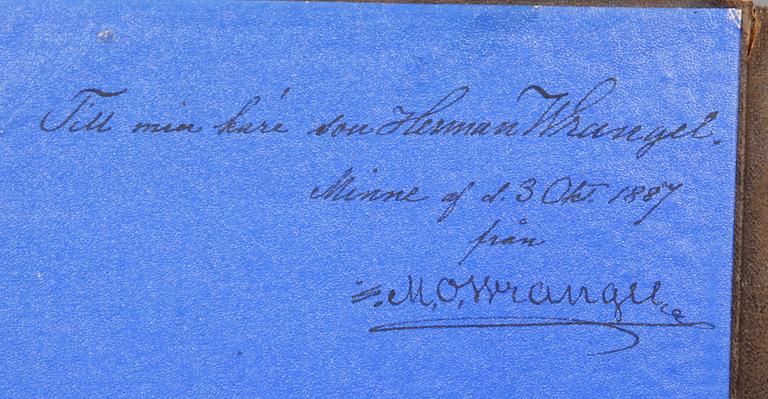 Till min käre son Herman Wrangel.
Minne af d. 3 Okt. 1887
från
M. O. Wrangel